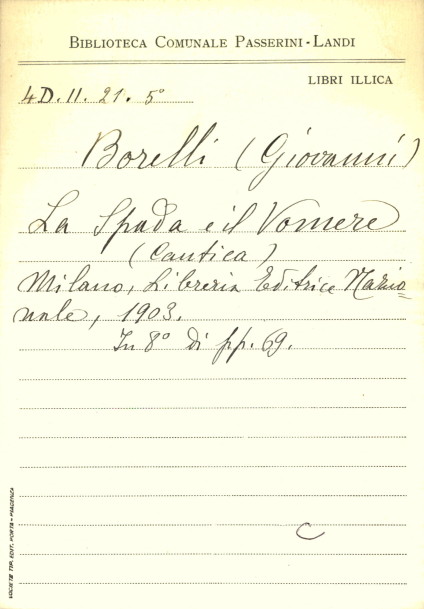 BIBLIOTECA COMUNALE PASSERINI-LANDI
LIBRI ILLICA
4D. II. 21. 5°
Borelli (Giovanni)
La Spada e il Vomere
(Cantica)
Milano, Libreria Editrice Nazio=
nale, 1903.
In 8° di pp. 69.
C
SOCIETÀ TIP. EDIT. PORTA - PIACENZA